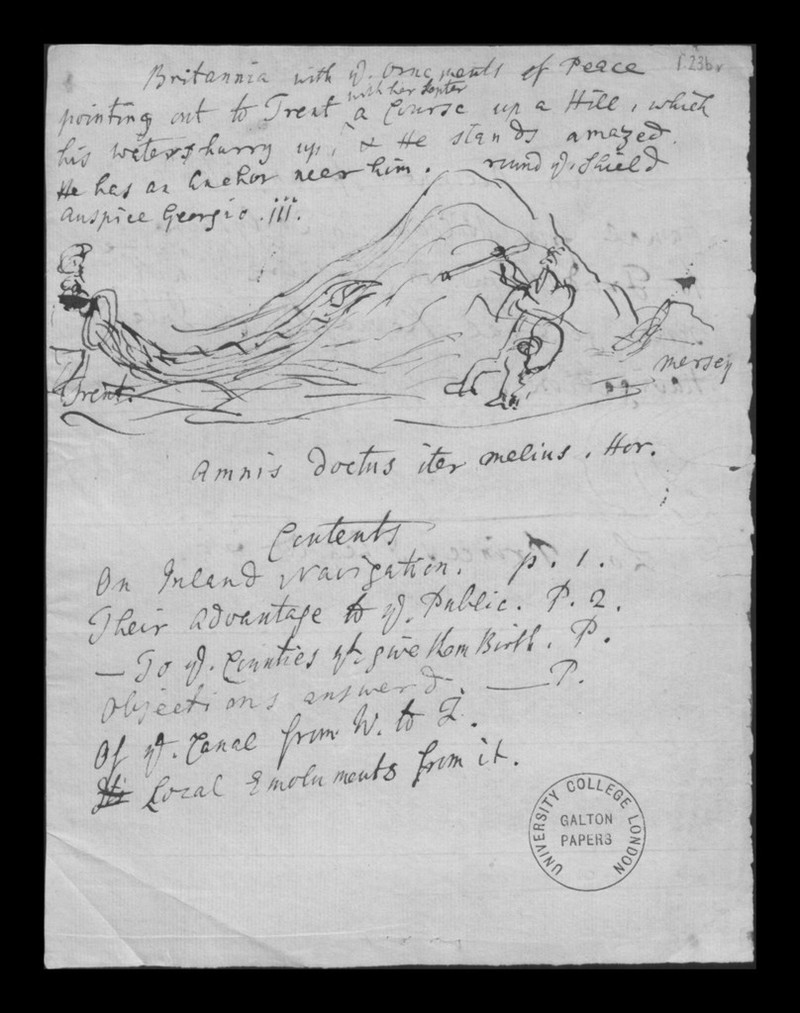 f.23b v
Britannia with ye. Ornaments of Peace
pointing out to Trent with her Septer a Course up a Hill, which
his waters hurry up, & He stands amazed.
He has an Anchor near him. round ye. Shield
Auspice Georgio .iii.
Trent.
Mersey
Amnis doctus iter melius. Hor.
Contents
On Inland Navigation. p. 1.
Their Advantage to ye. Public. P. 2.
— To ye. Counties yt. give them Birth. P.
Objections answerd. — P.
Of ye. Canal from W. to
Local Emoluments from it.
UNIVERSITY COLLEGE LONDON
GALTON
PAPERS